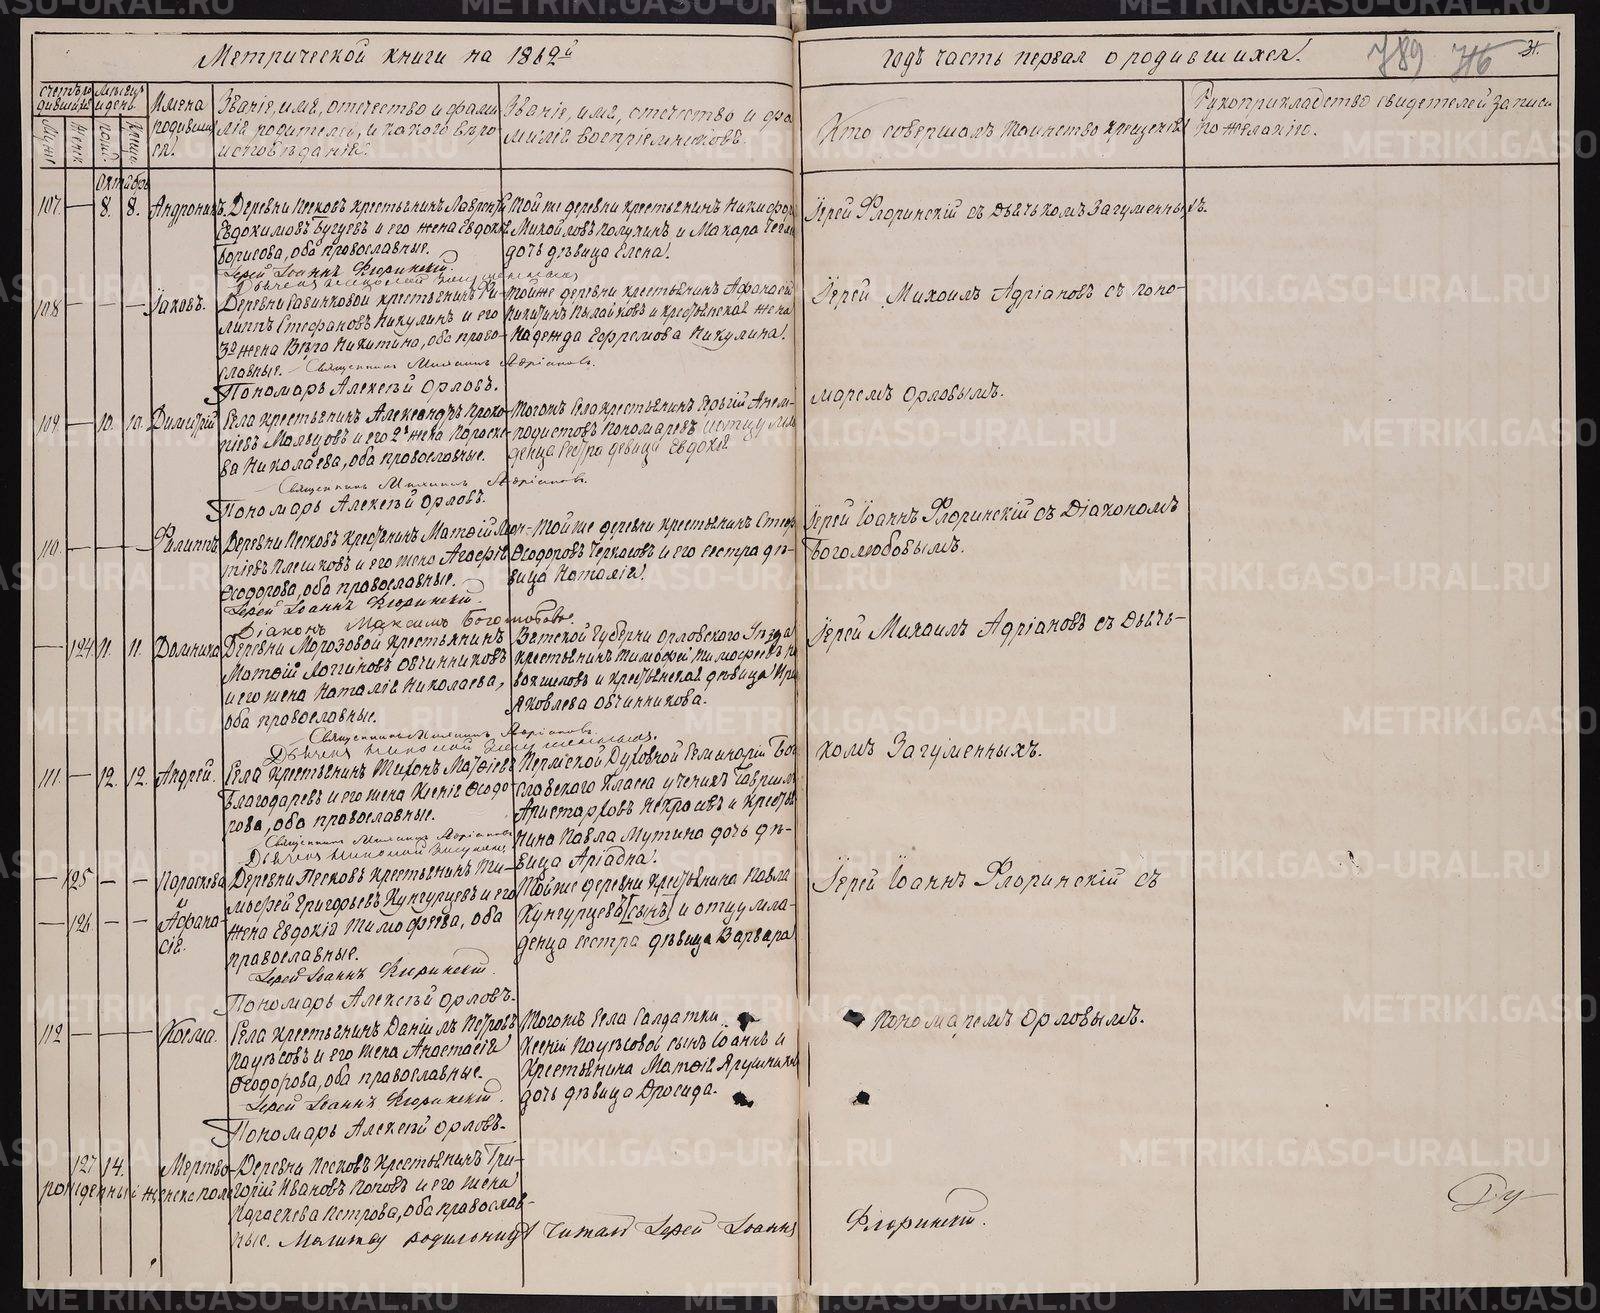 Метрической книги на 1862й годъ часть первая о родившихся.
789 716 31.
счетъ родившихся
Мѣсяцъ и день
Имена родившихся.
Званіе, имя, отечество и фамилія родителей, и какого вѣроисповѣданія.
Званіе, имя, отечество и фамилія воспріемниковъ.
Кто совершалъ таинство крещенія
Рукоприкладство свидетелей записи
по желанію.
Октябрь
107. — 8. 8. Андроникъ.
Деревни Песковъ крестьянинъ Лаврентій
Евдокимовъ Бугуевъ и его жена Евдокія
Борисова, оба православные.
Іерей Іоаннъ Флоринскій.
Той же деревни крестьянинъ Никифоръ
Михайловъ Полухинъ и Макара
дочь дѣвица Елена.
Іерей Флоринскій съ Дьячькомъ Загуменныхъ.
108 — — — Іаковъ.
Деревни Савинковой крестьянинъ Филиппъ Стефановъ Никулинъ и его
3я жена Вѣра Никитина, оба православные. — Священникъ Михаилъ Адріановъ.
Пономарь Алексѣй Орловъ.
Той же деревни крестьянинъ Афанасій
Никитинъ Пылайковъ и крестьянская жена
Надежда Ефремова Никулина.
Іерей Михаилъ Адріановъ съ поно-
маремъ Орловымъ.
109 — 10. 10. Димитрій
Села крестьянинъ Александръ Проко-
піевъ Мальцовъ и его 2я жена Параске-
ва Николаева, оба православные.
Священникъ Михаилъ Адріановъ.
Пономарь Алексѣй Орловъ.
Тогожъ села крестьянинъ Сергій Анем-
подистовъ Пономаревъ и отцу мла-
денца сестра девица Евдокія
110. — — — Филиппъ
Деревни Песковъ крестьянинъ Матѳій Леон-
тіевъ Плешковъ и его жена Агафія
Ѳеодорова, оба православные.
Іерей Іоаннъ Флоринскій.
Діаконъ Максимъ Боголюбовъ.
Той же деревни крестьянинъ Стефанъ
Ѳеодоровъ Черкасовъ и его сестра дѣ-
вица Наталія.
Іерей Іоаннъ Флоринскій съ Діакономъ
Боголюбовымъ.
— 124 11. 11. Домнина
Деревни Морозовой крестьянинъ
Матѳій Логгиновъ Овчинниковъ
и его жена Наталія Николаева,
оба православные.
Священникъ Михаилъ Адріановъ.
Вятской Губерніи Орловскаго Уѣзда
крестьянинъ Тимофей Тимофеевъ
и крестьянская дѣвица
Яковлева Овчинникова.
Іерей Михаилъ Адріановъ съ Дьячь-
комъ Загуменныхъ.
111. — 12. 12. Андрей.
Села крестьянинъ Тихонъ Матѳіевъ
Благодаревъ и его жена Ксенія Ѳеодо-
рова, оба православные.
Священникъ Михаилъ Адріановъ
Пермской Духовной Семинаріи Бого-
словскаго класса ученикъ Гавріилъ
Аристарховъ Некрасовъ и крестья-
нина Павла Мутина дочь дѣ-
вица Аріадна.
— 125 — — Параскева
и
— 126 — — Афана-
сія.
Деревни Песковъ крестьянинъ Ти-
мофей Григорьевъ Кунгурцевъ и его
жена Евдокія Тимофѣева, оба
православные.
Іерей Іоаннъ Флоринскій.
Пономарь Алексѣй Орловъ.
Той же деревни крестьянина Павла
Кунгурцева [сынъ] и отцу мла-
денца сестра дѣвица Варвара
Іерей Іоаннъ Флоринскій съ
Пономаремъ Орловымъ.
112 — — — Косма.
Села крестьянинъ Даніилъ Петровъ
Паузсовъ и его жена Анастасія
Ѳеодорова, оба православные.
Іерей Іоаннъ Флоринскій.
Пономарь Алексѣй Орловъ.
Тогожъ села солдатки
Ксеніи Паузсовой сынъ Іоаннъ и
крестьянина Матѳія
дочь дѣвица Дросида.
127 14. Мертво-
рожденный женска пола
Деревни Песковъ крестьянинъ Гри-
горій Ивановъ Поповъ и его жена
Параскева Петрова, оба православ-
ные. Молитву родильницѣ читалъ Іерей Іоаннъ Флоринскій.
METRIKI.GASO-URAL.RU